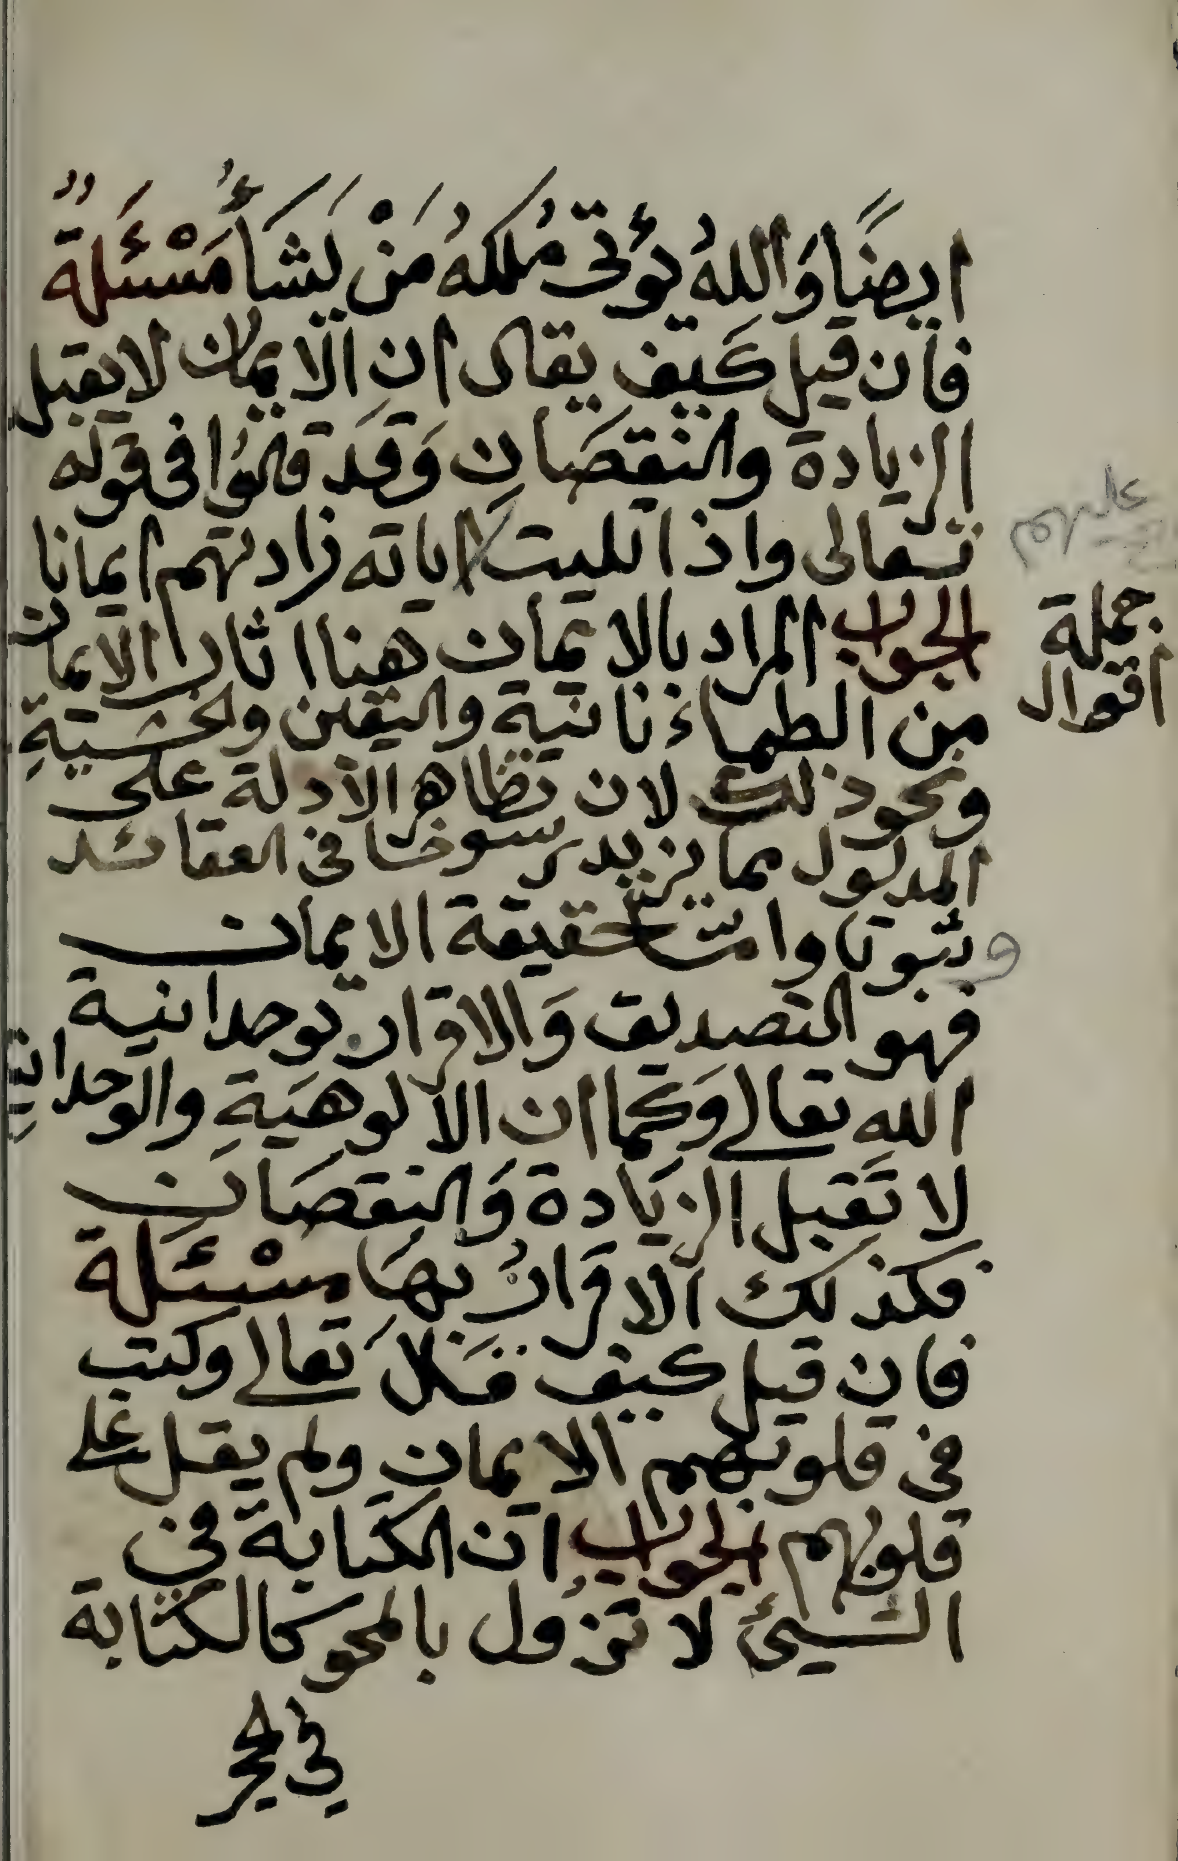 ايضًا وَاللهُ يُؤتى مُلكهُ مَنْ يَشَأُ مَسْئَلةٌ
فان قيل كَيف يقال ان الايمان لا يقبل
الزيادة والنقصَانِ وَقَد قالوُا فى قوله
تعالى واذا تليت اياته زادتهم ايمانا
عليهم
الجواب المراد بالايمان هنا اثار الايمان
جملة
اقوال
من الطماءنانية واليقين والخشيةِ
ونحو ذلك لان تظاهر الادلة على
المدلول مما يزيد رسوخا فى العقائد
و ثبوتا وامّا حقيقة الايمان
فهو التصديق وَالاقرار بوحدانية
الله تعالى وَكما ان الالوهيَةِ والوحدانيةِ
لا تَقبل الزيَادة وَالنقصَان
فكذلك الاقرارُ بهَا مسْئَلة
فان قيل كيف قال تعالى وكتب
فى قلوبهم الايمان ولم يقل على
قلوبهم الجواب ان الكتابة في
الشيئ لا تزُول بالمحو كالكتابة
في الحجر